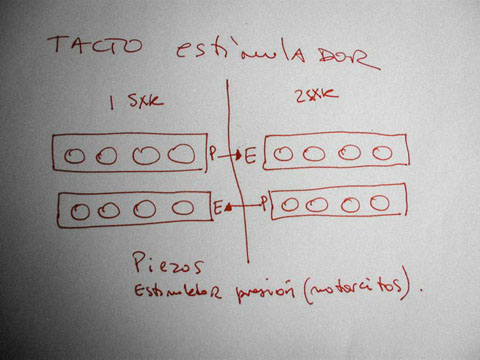 TACTO estimulADOR
1 SXK
2SXK
P E
E P
Piezos
Estimulador presión (motorcitos).